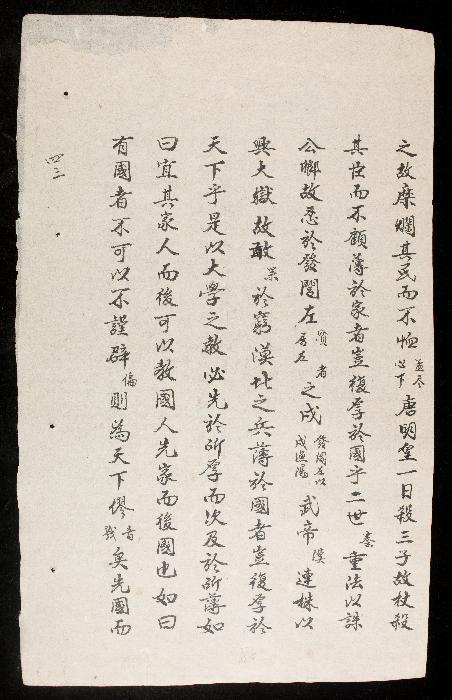 之故糜爛其民而不恤孟尽心下唐明皇一日殺三子故杖殺
其臣而不顧薄於家者豈復厚於國乎二世秦重法以誅
公卿故忍於發閭左貧者居左之戍發閭左以戍漁陽武帝漢連株以
興大獄故敢於窮漠北之兵薄於國者豈復厚於
天下乎是以大學之教必先於所厚而次及於所薄如
曰宜其家人而後可以教國人先家而後國也如曰
有國者不可以不謹辟偏則為天下僇音戮矣先國而
四三